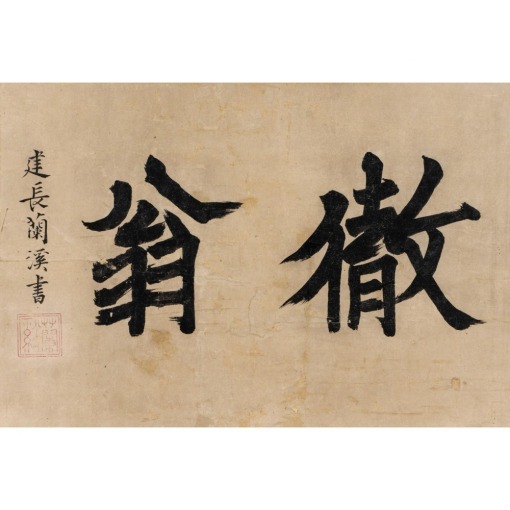 徹翁
建長蘭溪書